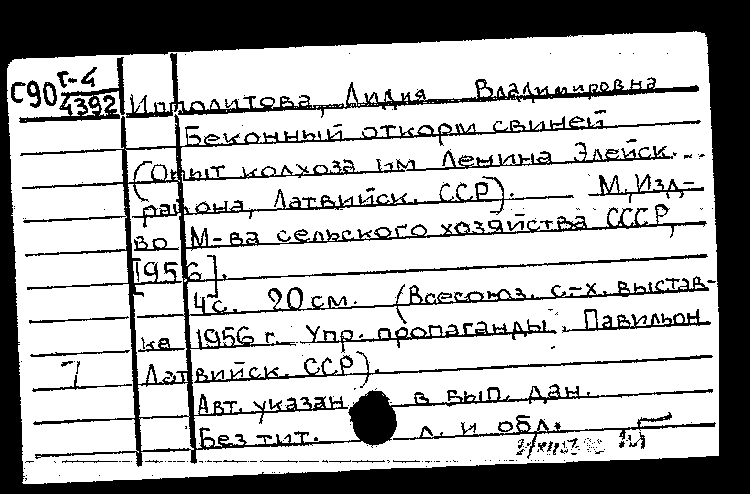 С90 Г-4
4392 Ипполитова, Лидия Владимировна
Беконный откорм свиней
(Опыт колхоза им Ленина Элейск.
района, Латвийск. ССР). М, Изд-
во М-ва сельского хозяйства СССР,
[1956].
4с. 20 см. (Всесоюз. с.-х. выстав-
ка 1956 г. Упр. пропаганды. Павильон
7 Латвийск. ССР).
Авт. указан в вып. дан.
Без тит. л. и обл.